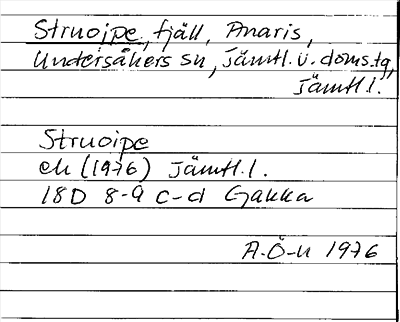 Struojpe, fjäll, Anaris,
Undersåkers sn, Jämtl.v.doms.tg,
Jämtl.l.
Struoipe
ek (1976) Jämtl.l.
18D 8-9 c-d Gakka
A.Ö-n 1976